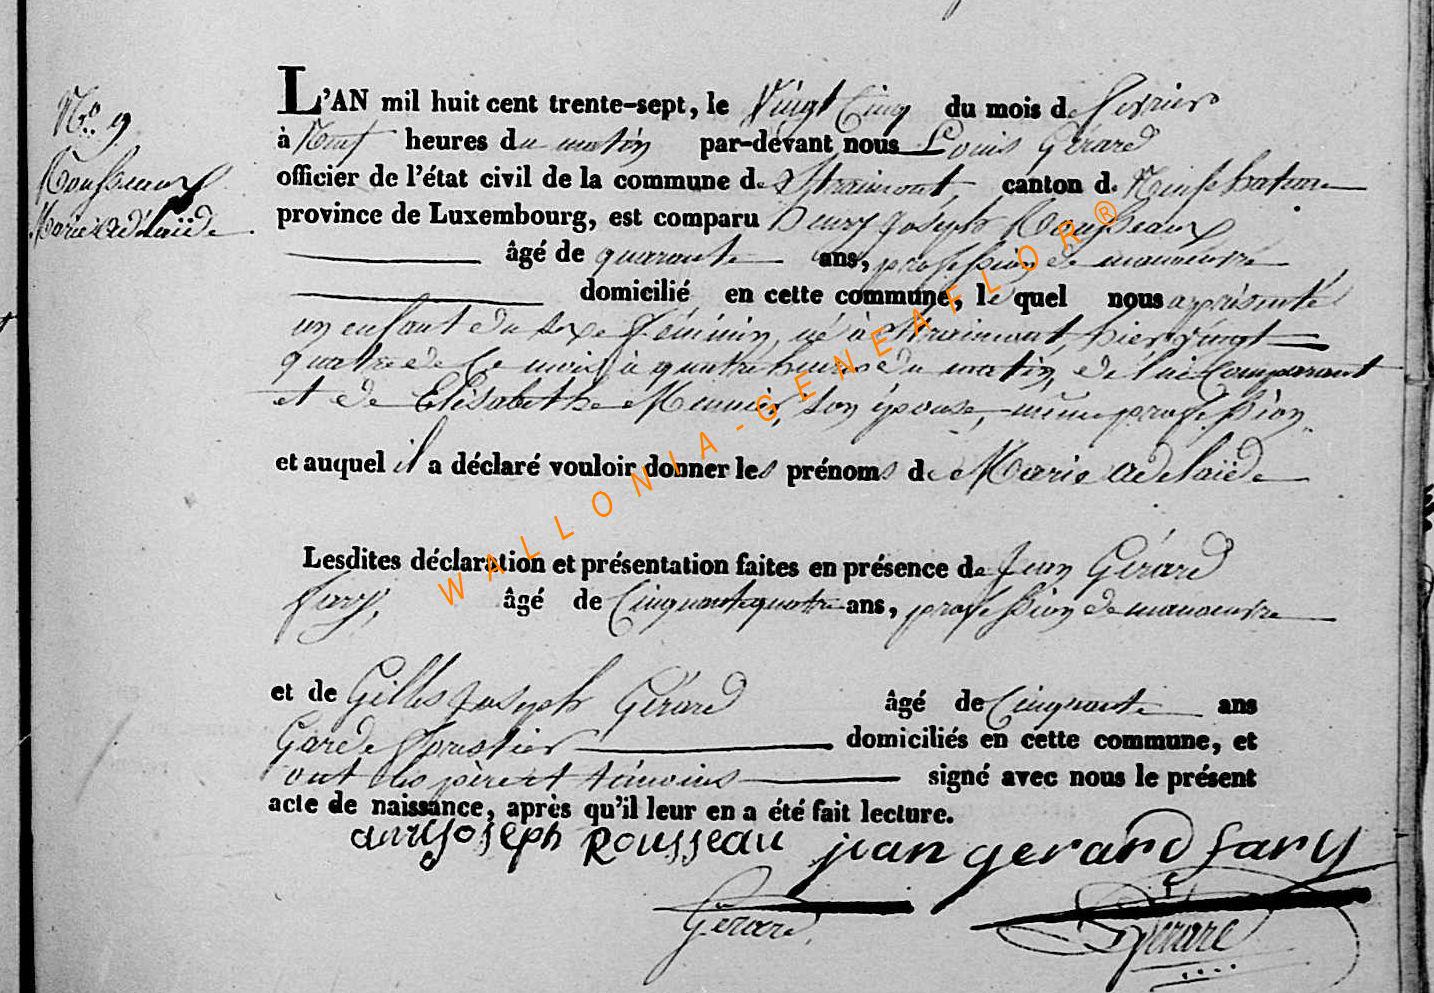 L'AN mil huit cent trente-sept, le Vingt Cinq du mois de fevrier
N.° 9
à Neuf heures du matin par-dévant nous Louis Gérard
Rousseaux
officier de l'état civil de la commune de Straimont, canton de Neufchateau
Marie Adélaïde
province de Luxembourg, est comparu henry Joseph Rousseaux
âgé de quarante ans, profession de manoeuvre
domicilié en cette commune, le quel nous a présenté
un enfant du sexe féminin, né à Straimont, hier vingt
quatre de ce mois à quatre heures du matin, de lui Comparant
et de Elisabethe Meunier, son épouse, même profession
et auquel il a déclaré vouloir donner les prénoms de Marie Adelaïde
WALLONIA-GENEAFLOR®
Lesdites déclaration et présentation faites en présence de Jean Gérard
fary, âgé de Cinquante quatre ans, profession de manoeuvre
et de Gilles Joseph Gérard âgé de Cinquante ans
Garde forestier domiciliés en cette commune, et
ont les père et témoins signé avec nous le présent
acte de naissance, après qu'il leur en a été fait lecture.
anryjoseph Rousseau jean gerard fary
Gérard Gérard